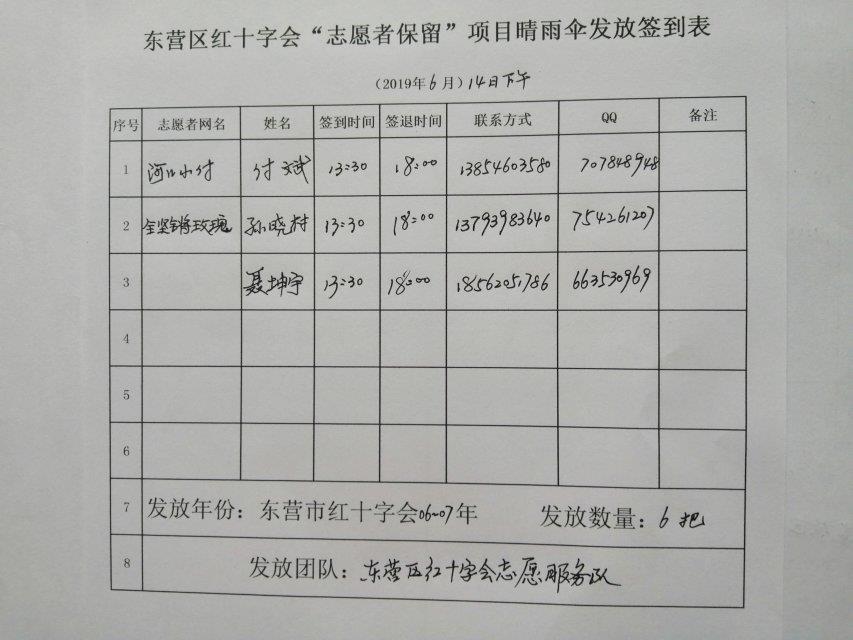 东营区红十字会“志愿者保留”项目晴雨伞发放签到表
（2019年6月）14日下午
序号 志愿者网名 姓名 签到时间 签退时间 联系方式 QQ 备注
1 河口小付 付斌 13:30 18:00 13854603580 707848948
2 铿锵玫瑰 孙晓村 13:30 18:00 13793983640 754261207
3 聂坤宇 13:30 18:00 18562051786 663530969
4
5
6
7 发放年份：东营市红十字会06~07年 发放数量：6把
8 发放团队：东营区红十字会志愿服务队